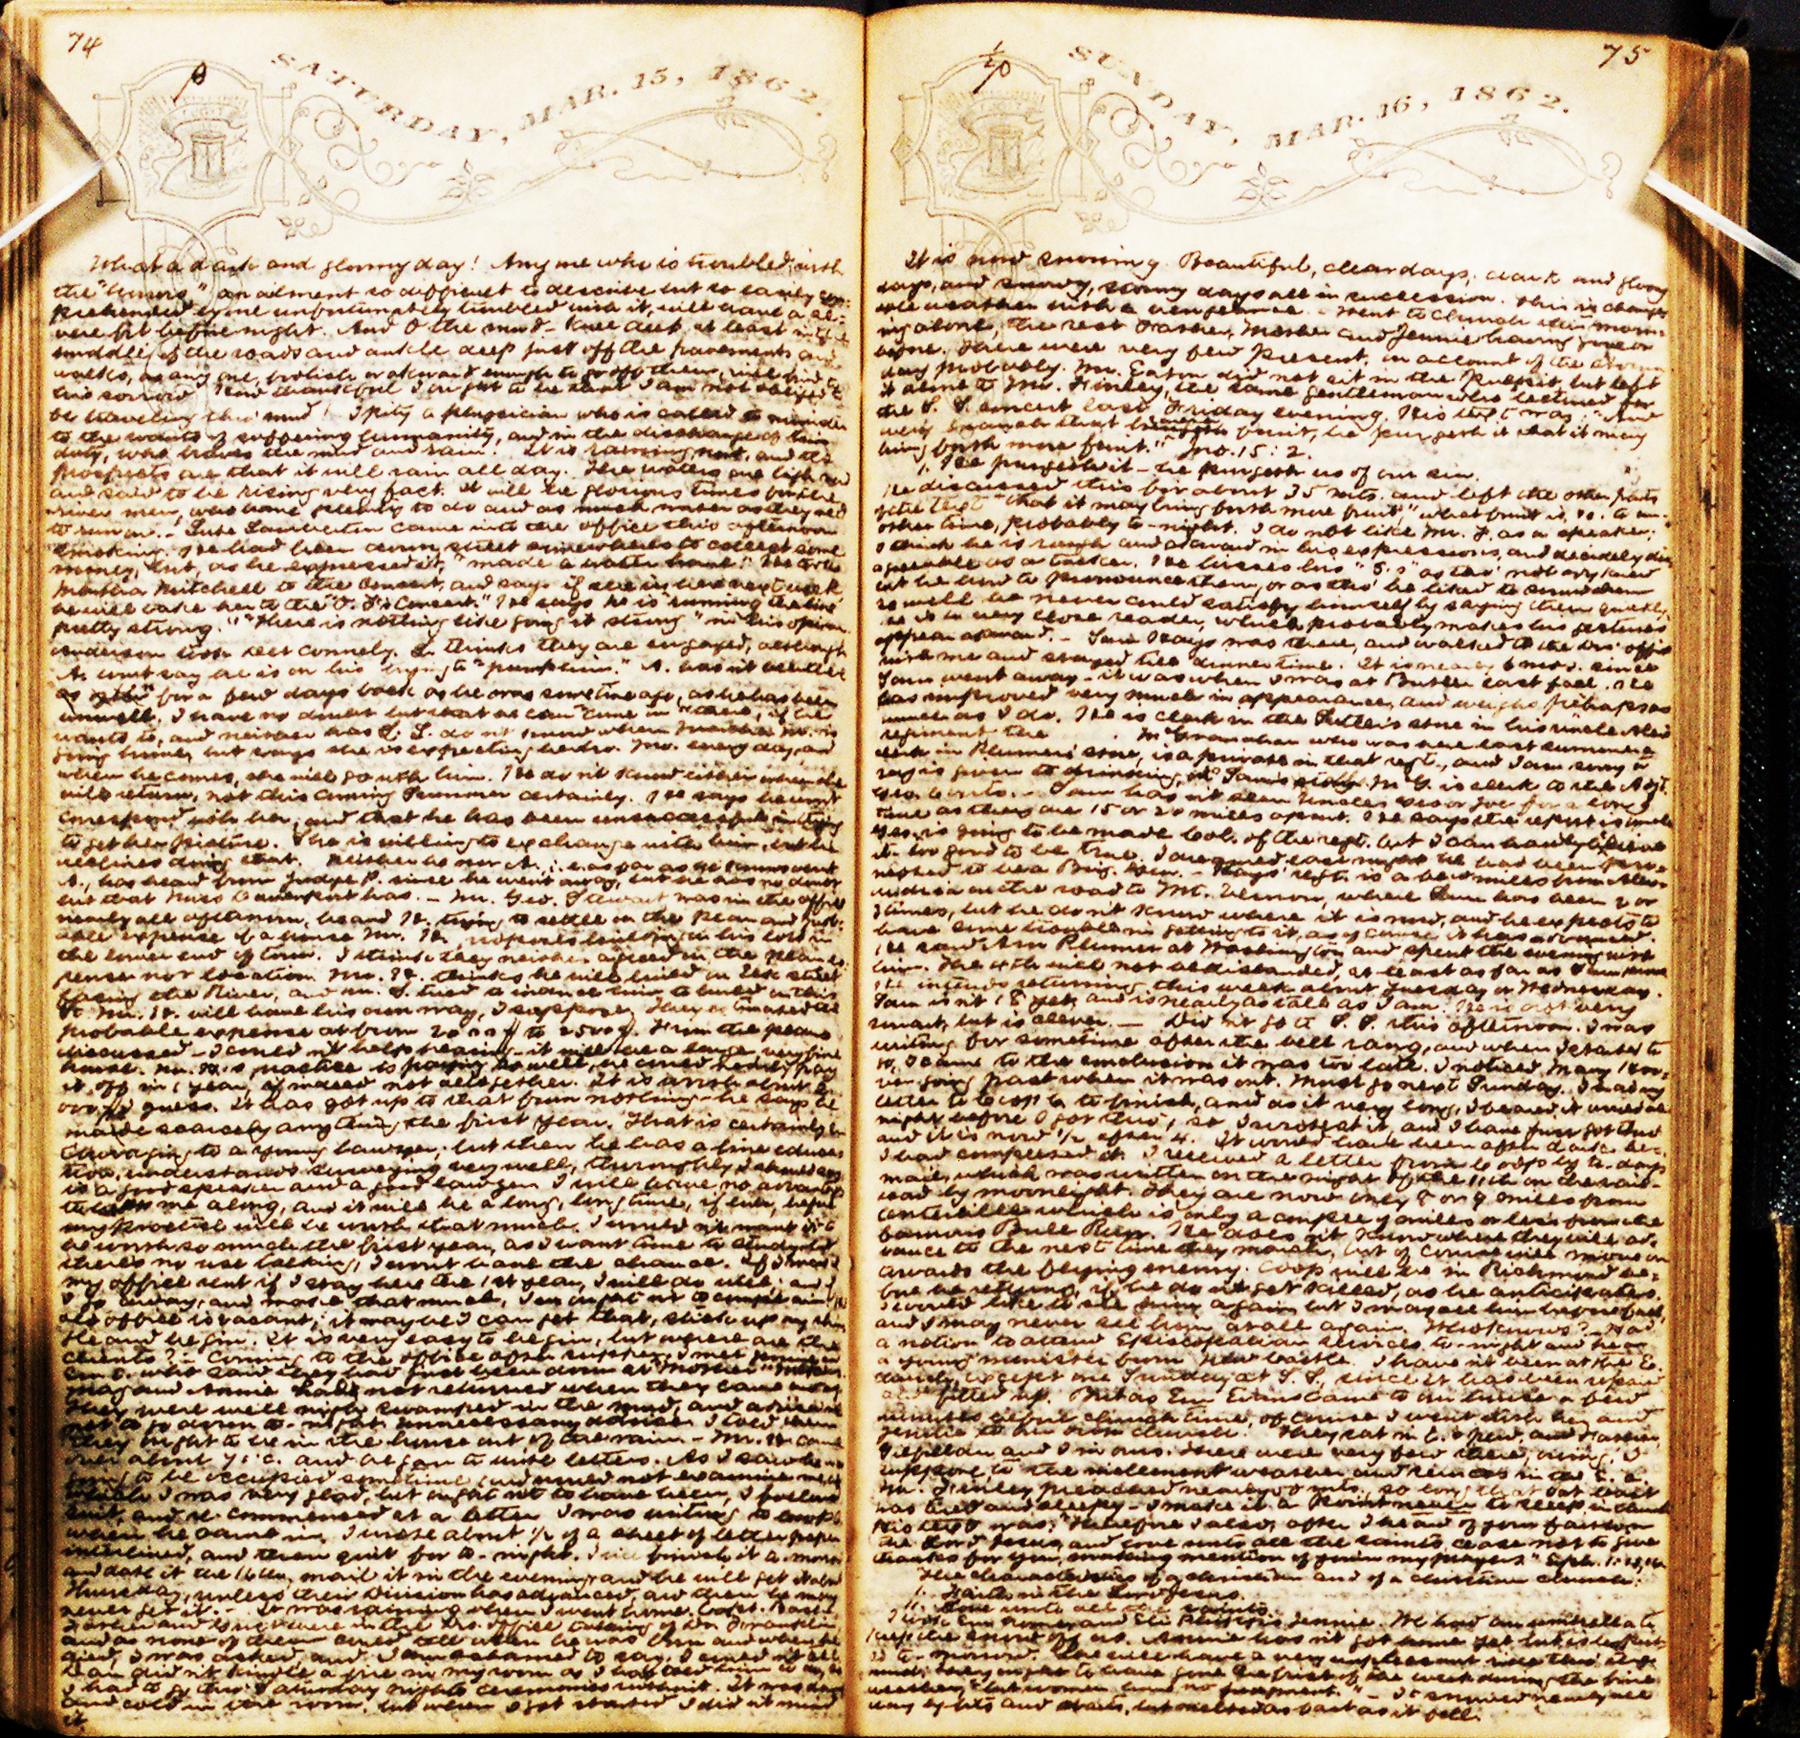 74
SATURDAY, MAR. 15, 1862.
What a dark and gloomy day! Any one who is troubled with
the "blues" an ailment so difficult to describe but so easily com-
prehended by one unfortunately troubled with it, will have a se-
vere fit before night. And O the mud - knee deep, at least in the
middle of the roads and ankle deep just off the pavements and
walks, as any one, foolish or awkward enough to go off them, will find to
his sorrow. How thankful I ought to be that I am not obliged to
be traveling this mud! I pity a physician who is called to minister
to the wants of suffering humanity, and in the discharge of his
duty, who braves the mud and rain. It is raining now, and the
prospects are that it will rain all day. The waters are high now
and said to be rising very fast. It will be glorious times for the
river men, who have plenty to do and as much water as they need
to run on. - came into the office this afternoon
smoking. He had been down street somewhere to collect some
money, but, as he expressed it, "made a water haul." He took
Martha Mitchell to the Concert, and says if she is here next week
he will take her to the Concert." He says he is "running the line
pretty strong." "There is nothing like going it strong" in his opinion.
Anderson took Connely. L. thinks they are engaged, although
A. won't say he is on his "pumpkin." A. hasn't been
for a few days back as he was sometime ago, as he has been
unwell. I have no doubt but that he can come in there, if he
wants to, and neither has L. L. don't know when Martha M. is
going home, but says she is expecting her bro. every day, and
when he comes, she will go with him. He don't know either when she
will return, not this coming Summer certainly. He says he won't
correspond with her, and that he has been unsuccessful in trying
to get her picture. She is willing to exchange with him, but he
declines doing that. Neither he nor A., i.e. as far as he knows about
A., has heard from Judge P. since he went away, but he has no doubt
but that Miss has. - Mr. Geo. Stewart was in the office
nearly all afternoon, he and H. trying to settle on the plan and prob-
able expense of a house Mr. H. proposes building on his lot in
the lower end of town. I think they neither agreed in the plan, ex-
pense nor location. Mr. H. thinks he will build on Elk street
facing the River, and Mr. S. tried to induce him to build on this
St. Mr. H. will have his own way, I suppose. They estimated the
probable expense at from 2000 to 2500$. From the plans
discussed - I could not help hearing - it will be a large, very fine
house. Mr. H.'s practice is paying so well, he could nearly pay
it off in 1 year, if indeed not altogether. It is worth about
I guess. It has got up to that from nothing - he says he
made scarcely anything the first year. That is certainly en-
couraging to a young lawyer; but then he has a fine educa-
tion, understands surveying very well, thoroughly I should say,
is a good speaker and a good lawyer. I will have no advantages
to help me along, and it will be a long, long time, if ever, before
my practice will be worth that much. I would not want it to
be worth so much the first year, as I want time to study, but
there's no use talking, I won't have the chance. If I make
my office rent if I stay here the 1st year, I will do well, and
I go away, and make that much, I ought not to complain. The
old office is vacant; it may be I can get that, stick up my shin-
gle and begin. It is very easy to begin, but where are the
clients? - Coming to the office after supper, I met Jennie and
who said they had just been down at
Mag and Annie had not returned when they came away.
They were well nigh swamped in the mud, and advised
not to go down to-night. Unnecessary advice. I told them
they ought to be in the house out of the rain. - Mr. H. came
over about 7 o'c. and began to write letters. As I saw he was
going to be occupied sometime and would not examine me
which I was very glad, but ought not to have been, I followed
suit, and re-commenced at a letter I was writing to Coop
when he came in. I wrote about 1/2 of a sheet of letter paper
interlined, and then quit for to-night. I will finish it to-morrow
and date it the 16th, mail it in the evening and he will get it about
Thursday, unless their Division has advanced, and then he may
never get it. - It was raining when I went home.
were in the Drs. office talking of Dr. Franklin
and as none of them could tell when he was born and when he
died, I was asked, and, I am ashamed to say, I could not tell.
Dan didn't kindle a fire in my room as I had told him to do, so
I had to go thro' Saturday night's ceremonies without. It was damp
and cold in the room, but when I got started I did not mind
it.
75
SUNDAY, MAR. 16, 1862.
It is now snowing. Beautiful, clear days, dark and gloomy
days, and snowy, stormy days all in succession. This is change-
able weather with a vengeance. - Went to church this morn-
ing alone, the rest Father, Mother and Jennie having gone be-
fore. There were very few present, on account of the stormy
day probably. Mr. Eaton did not sit in the pulpit, but left
it alone to Mr. Finley, the same gentleman who lectured for
the S. S. concert last Friday evening. His text was: "And
every branch that beareth fruit, he purgeth it that it may
bring forth more fruit." Jno. 15:2.
1. He purgeth it - he purgeth us of our sin.
He discussed this for about 35 mts. and left the other parts
of the text "that it may bring forth more fruit" what fruit is, &c. to an-
other time, probably to-night. I do not like Mr. F. as a speaker;
I think he is rough and awkward in his expressions, and decidedly dis-
agreeable as a talker. He hisses his "S.s" as tho' not only knew
not he how to pronounce them, or as tho' he liked to sound them
so well he never could satisfy himself by saying them quickly,
he is a very close reader, which probably makes his gestures
appear awkward. - Sam Hays was there, and walked to the Drs' office
with me and stayed till dinner time. It is nearly 6 mos. since
Sam went away - it was when I was at Butler last fall. He
has improved very much in appearance, and weighs perhaps as
much as I do. He is clerk in the Sutler's store in his uncle Alex's
regiment the . McGranahan who was here last summer a
clerk in Plumer's store, is a private in that regt., and Sam says
is given to drinking, McG. is clerk to the Adjt.
Sam hasn't seen Uncles or Joe for a long
time as they are 15 or 20 miles apart. He says the report is uncle
is going to be made Col. of the regt. but I can hardly believe
it. Too good to be true. I dreamed last night he had been pro-
moted to be a Brig. Gen. - Hays' regt. is a few miles from Alex-
andria on the road to Mt. Vernon, where Sam has been 2 or
3 times, but he don't know where it is now, and he expects to
have some trouble in getting to it, as of course, it has advanced.
He saw Plumer at Washington and spent the evening with
him. The 4th will not be disbanded, at least as far as Sam knows.
He intends returning this week about Tuesday or Wednesday.
Sam isn't 18 yet and is nearly as tall as I am. He is not very
smart, but is clever. - Didn't go to S. S. this afternoon. I was
writing for sometime after the bell rang, and when I started to
go, I came to the conclusion it was too late. I noticed Mary
going past when it was out. Must go next Sunday. I had my
letter to Coop to finish, and as it very long, I heard it would be
night before I got thro', so, I wrote at it, and I have just got thro'
and it is now 1/2 after 4. It would have been after dark be-
I had completed it. I received a letter from Coop by to-day's
mail, which was written on the night of the 11th on the rail-
road by moonlight. They are now only 8 or 9 miles from
Centreville which is only a couple of miles or less from the
famous Bull Run. He does not know where they will ad-
vance to the next time they march, but of course will move on
towards the flying enemy. Coop will be in Richmond be-
fore he returns, if he do not get killed, as he anticipates.
I would like to see him again but I may see him before that,
and I may never see him at all again. Who knows? - Had
a notion to attend Episcopalian services to-night and hear
a young minister from New Castle. I haven't been at the E.
church, except one Sunday at S. S., since it has been repaired
and fitted up. But as Em Evans came to our house a few
minutes before church time, of course I went with her and
Jennie to our own church. They sat in E.'s pew, and Father,
and I in ours. There were very few there, owing, I
suppose to the inclement weather and services in the E. C.
Mr. Finley preached nearly 50 mts., so long that at last
was tired and sleepy - I make it a point never to sleep in church.
His text was: "Wherefore I also, after I heard of your faith in
the Lord Jesus, and love unto all the saints, cease not to give
thanks for you, making mention of you in my prayers." Eph. 1:15,16.
The characteristics of a christian and of a christian church:
1. Faith in the Lord Jesus.
11. Love unto all the saints.
I took Em home and Eli Jennie. We had an umbrella to
keep the snow off us. Annie hasn't got home yet but is expect-
ed to-morrow. She will have a very unpleasant ride thro' the
mud; they ought to have gone the first of the week during the fine
weather; "but women have no judgment." - It snowed nearly all
day by fits and starts, but melted as fast as it fell.